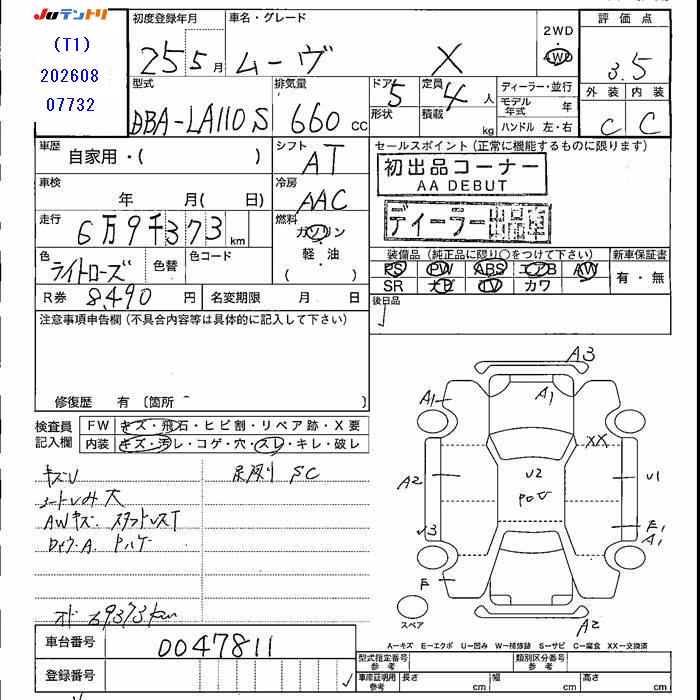 Juテントリ
(T1)
202608
07732
初度登録年月
25 5月
車名・グレード
ムーヴ X
2WD
4WD
評価点
3.5
外装 内装
C C
型式
DBA-LA110S
排気量
660cc
ドア 5
形状
定員 4人
積載 kg
ディーラー・並行
モデル年式 年
ハンドル 左・右
車歴
自家用・( )
シフト
AT
セールスポイント(正常に機能するものに限ります)
初出品コーナー
AA DEBUT
ディーラー
車検
年 月( 日)
冷房
AAC
走行
6万9千373km
燃料
ガソリン
軽・油
( )
色
ライトローズ
色替
色コード
装備品(純正品に限り○をつけて下さい)
新車保証書
PS PW ABS エアB AW
SR ナビ TV カワ
有・無
R券 8,490円
名変期限 月 日
後日品
注意事項申告欄(不具合内容等は具体的に記入して下さい)
修復歴 有〔箇所 〕
検査員記入欄
FW キズ・飛石・ヒビ割・リペア跡・X要
内装 キズ・汚レ・コゲ・穴・スレ・キレ・破レ
キズU
足廻り SC
シートシミ大
AWキズ スタッドレスT
オド 69373km
A3
A1
A1
XX
A2
U2
U1
√3
E1
A1
E
A2
スペア
A=キズ E=エクボ U=凹み W=補修跡 S=サビ C=腐食 XX=交換済
車台番号
0047811
登録番号
型式指定番号
参考
類別区分番号
参考
車庫証明用
参考
長さ cm
幅 cm
高さ cm